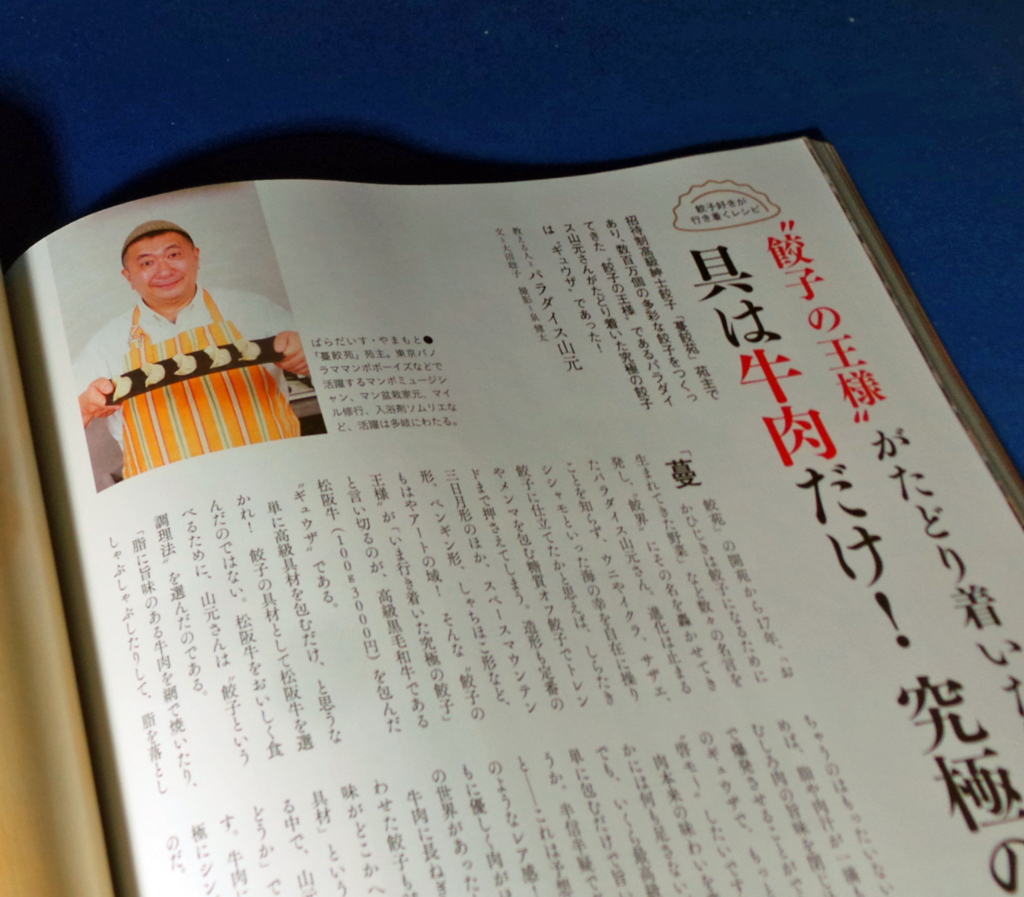 餃子好きが
行き着くレシピ
“餃子の王様”がたどり着いた
具は牛肉だけ！究極の
招待制高級紳士餃子「蔓餃苑」苑主で
あり、数百万個の多彩な餃子をつくっ
てきた“餃子の王様”であるパラダイ
ス山元さんがたどり着いた究極の餃子
は“ギュウザ”であった！
教える人＝パラダイス山元
ぱらだいす・やまもと●
「蔓餃苑」苑主。東京パノ
ラママンボボーイズなどで
活躍するマンボミュージシ
ャン、マン盆栽家元、マイ
ル修行、入浴剤ソムリエな
ど、活躍は多岐にわたる。
「蔓餃苑」の開苑から17年、「お
かひじきは餃子になるために
生まれてきた野菜」など数々の名言を
発し、“餃界”にその名を轟かせてき
たパラダイス山元さん。進化は止まる
ことを知らず、ウニやイクラ、サザエ、
シシャモといった海の幸を自在に操り
餃子に仕立てたかと思えば、しらたき
やメンマを包む糖質オフ餃子でトレン
ドまで押さえてしまう。造形も定番の
三日月形のほか、スペースマウンテン
形、ペンギン形、しゃちほこ形などと、
もはやアートの域！ そんな“餃子の
王様”が「いま行き着いた究極の餃子」
と言い切るのが、高級黒毛和牛である
松阪牛（100g3000円）を包んだ
“ギュウザ”である。
単に高級具材を包むだけ、と思うな
かれ！ 餃子の具材として松阪牛を選
んだのではない。松阪牛をおいしく食
べるために、山元さんは“餃子という
調理法”を選んだのである。
「脂に旨味のある牛肉を網で焼いたり、
しゃぶしゃぶしたりして、脂を落とし
ちゃうのはもったいない
めば、脂や肉汁が一滴も
むしろ肉の旨味を閉じ
で爆発させることがで
のギュウザで、もっと
“啓モー！”したいです
肉本来の味わいを
かには何も足さない
でも、いくら最高級
単に包むだけで旨い
うか。半信半疑で
と――これは予想
のようなレア感！
もに優しく肉がほ
の世界があった
牛肉に長ねぎ
わせた餃子も
味がどこかへ
具材」という
る中で、山元
どうか」で
す。牛肉に
極にシン
のだ。